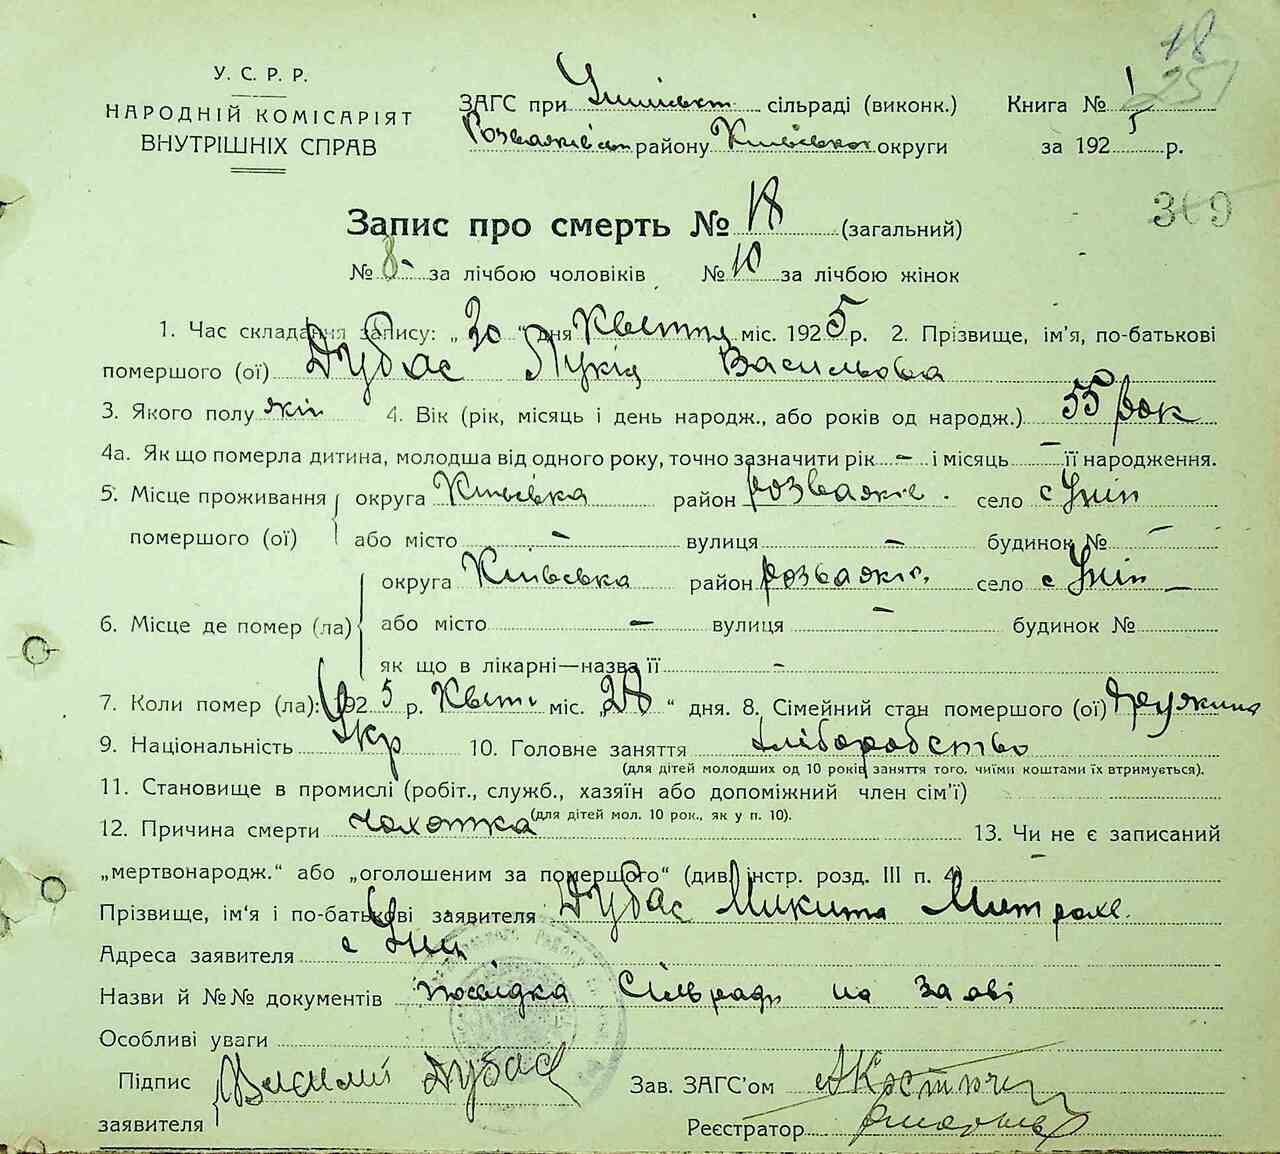 18
251
У. С. Р. Р.
НАРОДНІЙ КОМІСАРІЯТ
ВНУТРІШНІХ СПРАВ
ЗАГС при сільраді (виконк.)
Розважівськ району Київської округи
Книга № 1
за 1925 р.
309
Запис про смерть № 18 (загальний)
№ 8 - за лічбою чоловіків № 10 за лічбою жінок
1. Час складання запису: „30“ дня Квітня міс. 1925 р. 2. Прізвище, ім'я, по-батькові
помершого (ої) Дубас Лукія Васильова
3. Якого полу жін 4. Вік (рік, місяць і день народж., або років од народж.) 55 рок
4а. Як що померла дитина, молодша від одного року, точно зазначити рік – і місяць – її народження.
5. Місце проживання округа Київська район розважів. село с Унін
помершого (ої) або місто – вулиця – будинок № –
округа Київська район розважів. село с Унін –
6. Місце де помер (ла) або місто – вулиця – будинок №
як що в лікарні—назва її -
7. Коли помер (ла): 1925 р. Квітн міс. „28“ дня. 8. Сімейний стан помершого (ої) дружина
9. Національність Укр 10. Головне заняття хліборобство
(для дітей молодших од 10 років заняття того, чиїми коштами їх втримується).
11. Становище в промислі (робіт., служб., хазяїн або допоміжний член сім'ї)
(для дітей мол. 10 рок., як у п. 10).
12. Причина смерти чахотка 13. Чи не є записаний
„мертвонародж.“ або „оголошеним за помершого“ (див. інстр. розд. III п. 4) –
Прізвище, ім'я і по-батькові заявителя Дубас Микита Митроф.
Адреса заявителя с Унін
Назви й №№ документів посвідка Сільради на заяві
Особливі уваги
Підпис заявителя Василий Дубас
Зав. ЗАГС'ом
Реєстратор